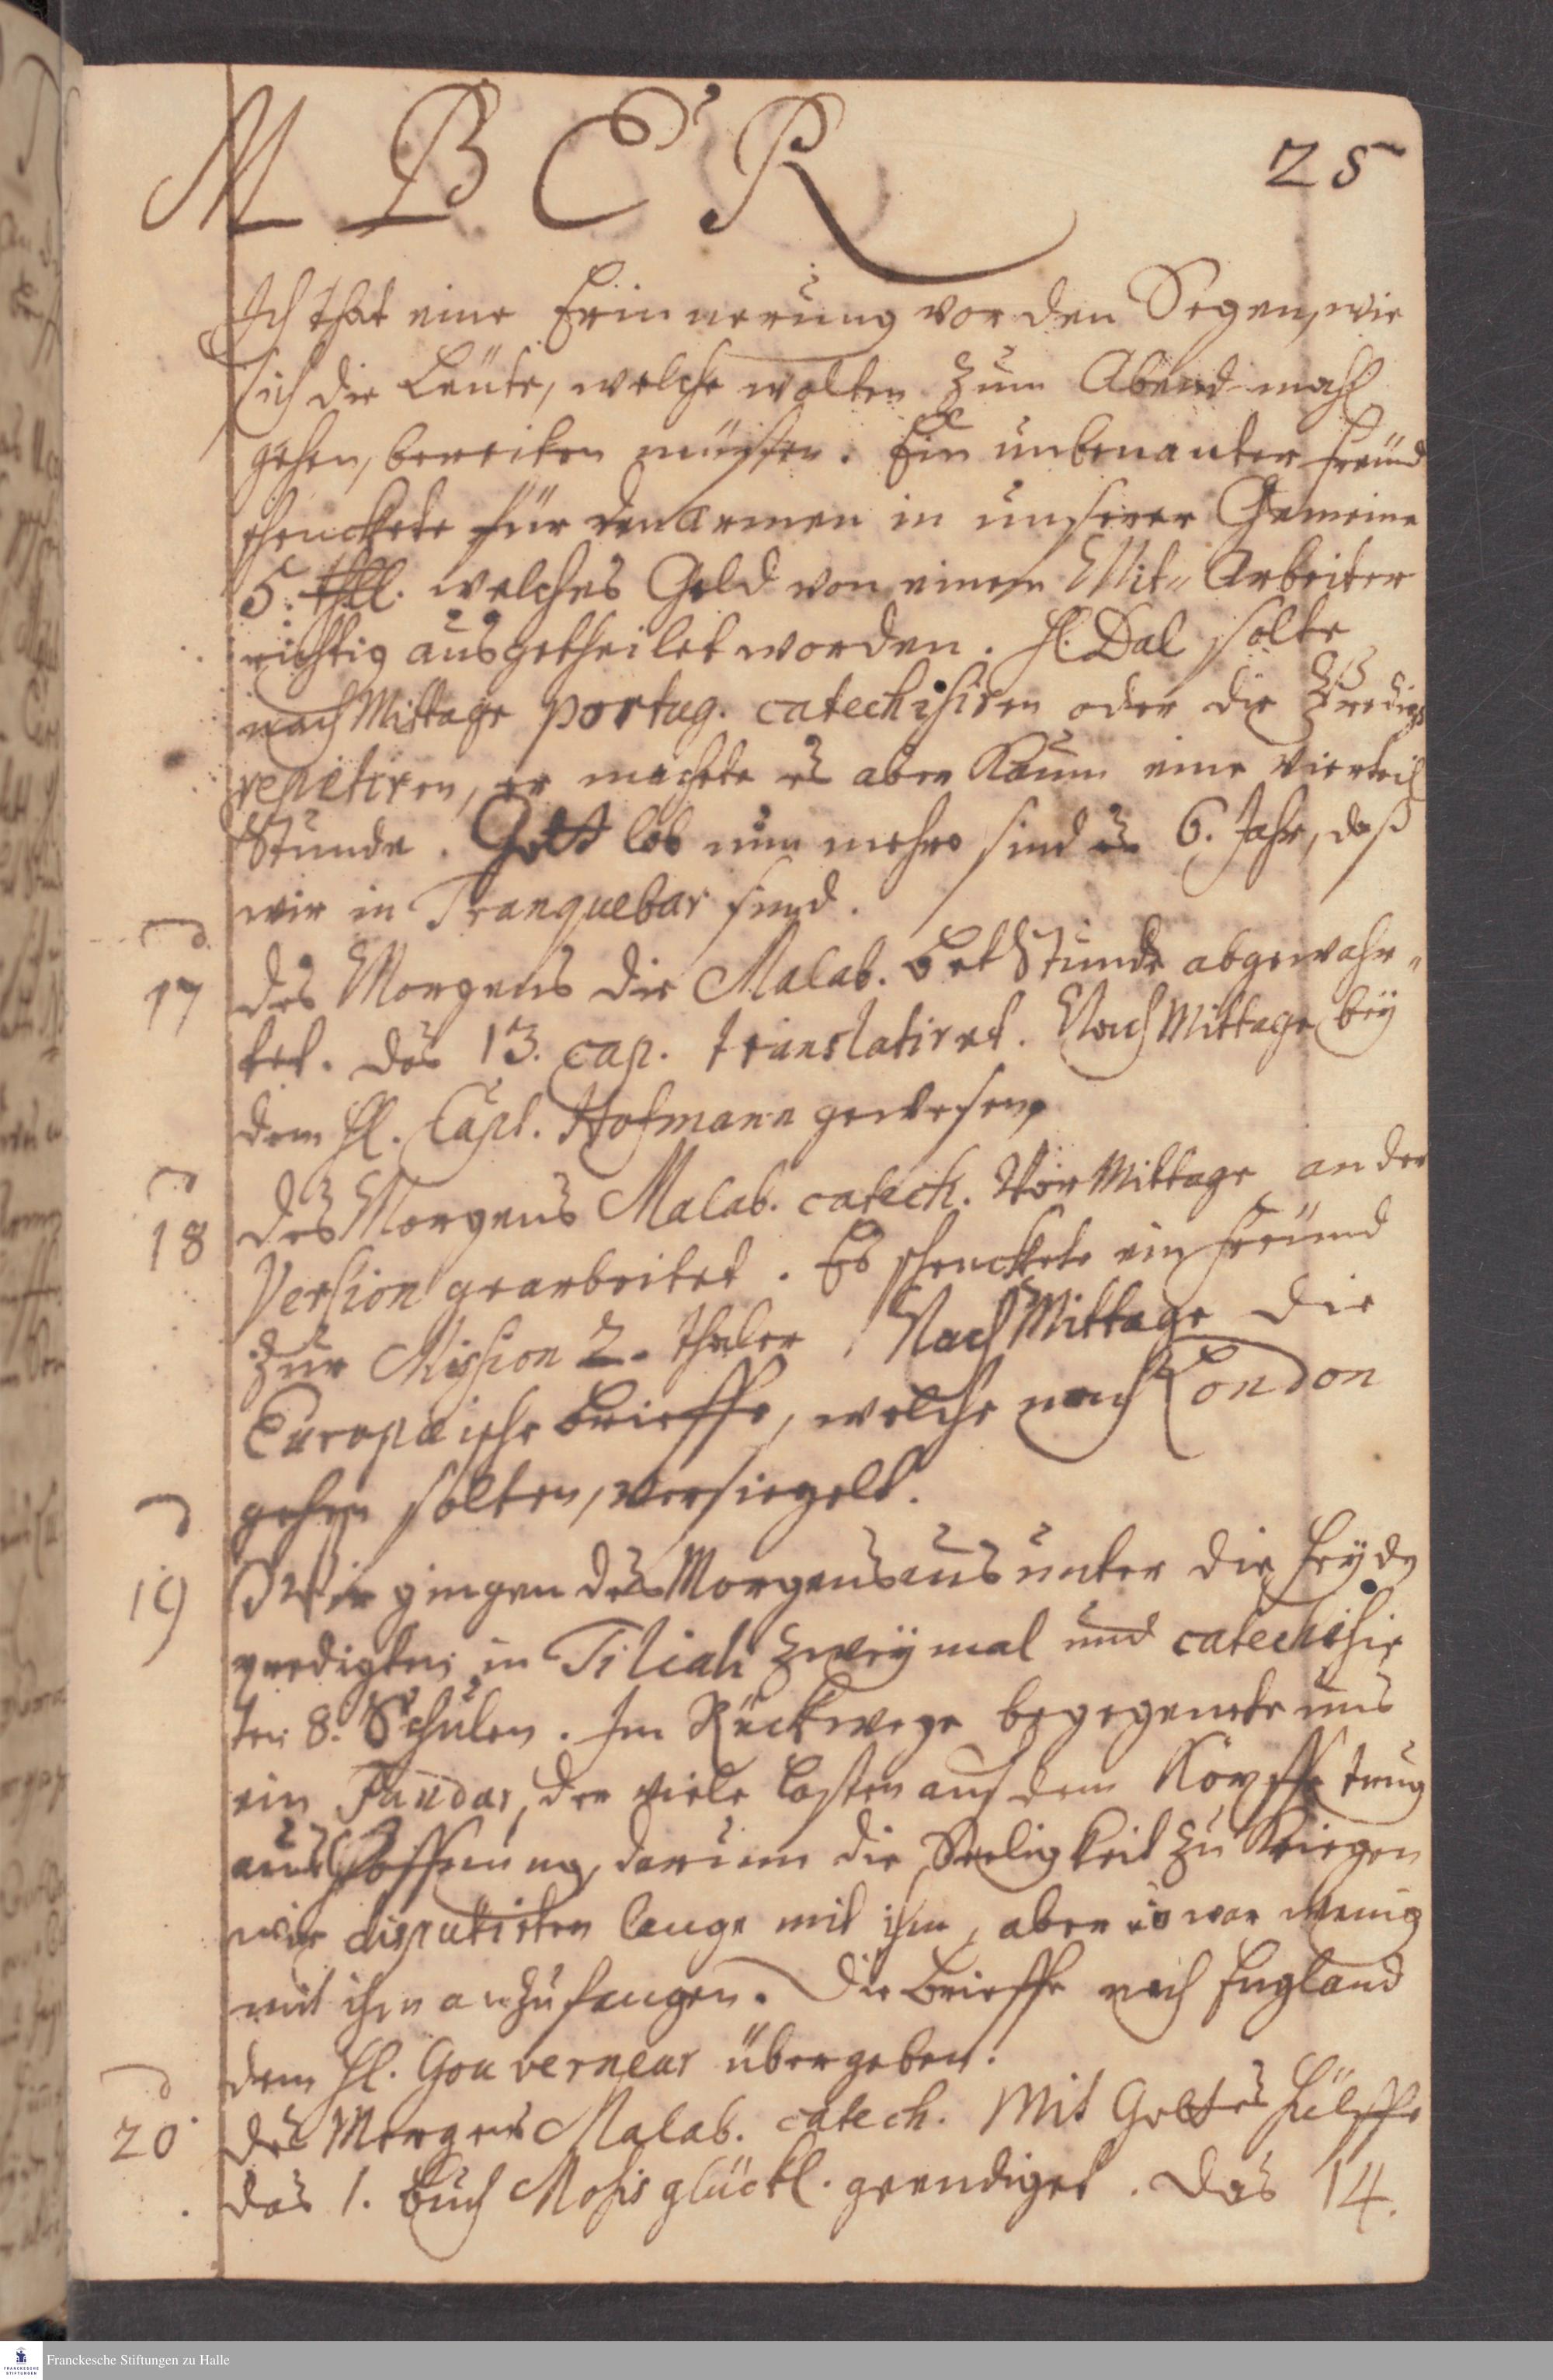 M B C R 25
Ich that eine Erinnerung vor den Segen, wie
sich die Leüte, welche wolten zum Abend mahl
gehen, bereiten müssen. Ein unbenanter Freünd
schenckete für den armen in unserer Gemeine
5. thll. welches Geld von einem Mit„ Arbeiter
richtig ausgetheilet worden. H. Dal solte
nach Mittage portug. catechisiren oder die Predigt
repetiren, er machete es aber kaum eine Viertheil
Stunde. Gott lob nun mehro sind es 6. Jahr, daß
wir in Tranquebar sind.
17 des Morgens die Malab. Bet Stunde abgewahr„
tet. das 13. cap. translatiret. Nach Mittage bey
dem H. Capt. Hofmann gewesen,
18 des Morgens Malab. catech. Vor Mittage an der
Version gearbeitet. Es schenckete ein Freünd
zur Mission 2. Thaler. Nach Mittage die
Europæische Brieffe, welche nach London
gehen solten, versiegelt.
19 Wir gingen des Morgens aus unter die Heyden
predigten in Tiliali zweymal und catechisir
ten 8. Schulen. Im Rückwege begegenete uns
ein Pandar, der viele Lasten auf dem Köpffe trug
aus Hoffnung, darum die Seeligkeit zu kriegen
wir disputirten lange mit ihm, aber es war wenig
mit ihm anzufangen. Die Brieffe nach England
dem H. Gouverneur übergeben.
20. des Morgens Malab. catech. Mit Gottes Hülffe
das 1. Buch Mosis glückl. geendiget. Das 14.
Franckesche Stiftungen zu Halle